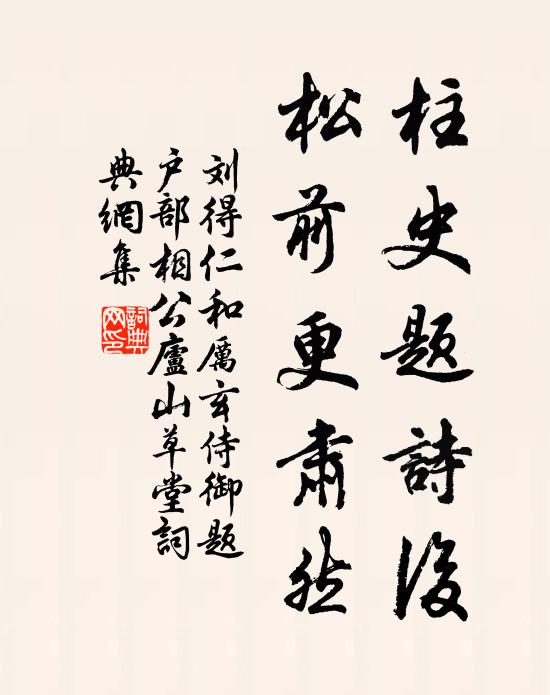 柱史题詩後
松前更肅然
刘得仁和厲玄侍御题
户部相公廬山草堂詞
典網集
詞典网印